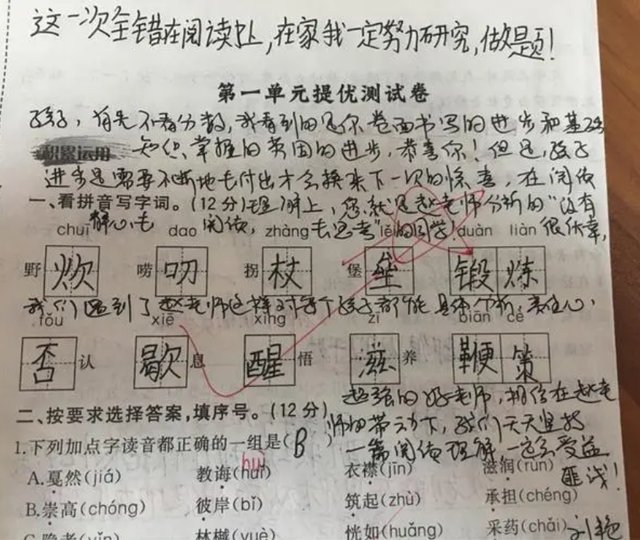 这一次全错在阅读上,在家我一定努力研究,做题!
第一单元提优测试卷
孩子,首先不看分数,我看到的是你卷面书写的进步和基础
积累运用 知识掌握的 的进步,恭喜你!但是,孩子
进步是需要不断地去付出才会换来下一次的惊喜,在阅读
一、看拼音写字词。(12分)理解上,您就是赵老师分析的“没有
静心去阅读,去思考”的同学!很庆幸,
chuī dao zhàng lěi duàn liàn
野炊 唠叨 拐杖 堡垒 锻炼
我们遇到了赵老师这样对每个孩子都能具体分析,责任心
fǒu xiē xǐng zī biān cè
否认 歇息 醒悟 滋养 鞭策
超强的好老师,相信在赵老
二、按要求选择答案,填序号。(12分)
师的带动下,孩子们天天坚持
1.下列加点字读音都正确的一组是(B)
一篇阅读理解,一定会受益
匪浅!
A.戛然(jiá) 教诲(huì) 衣襟(jīn) 滋润(run)
B.崇高(chóng) 彼岸(bǐ) 筑起(zhù) 承担(chéng)
C.隐者(yǐn) 林樾(yuè) 恍如(huǎng) 采药(chǎi)
刘艳